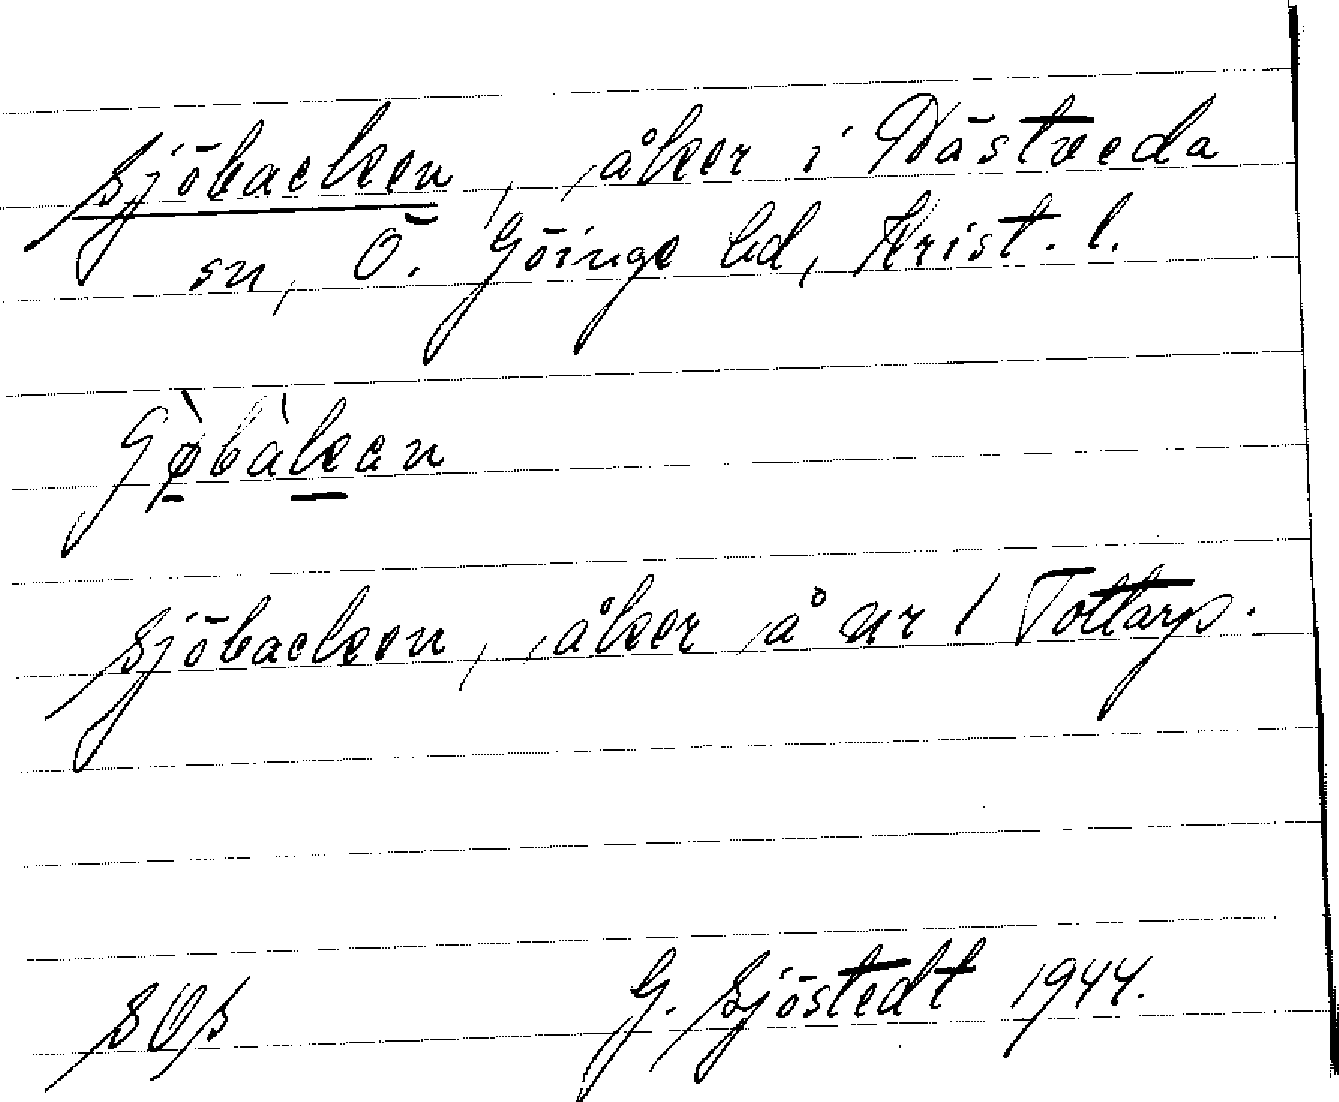 Sjöbacken, åker i Västveda
sn, Ö. Göinge hd, Krist. l.
Sjöbacken, åker å nr 1 Tottarp.
G. Sjöstedt 1944.